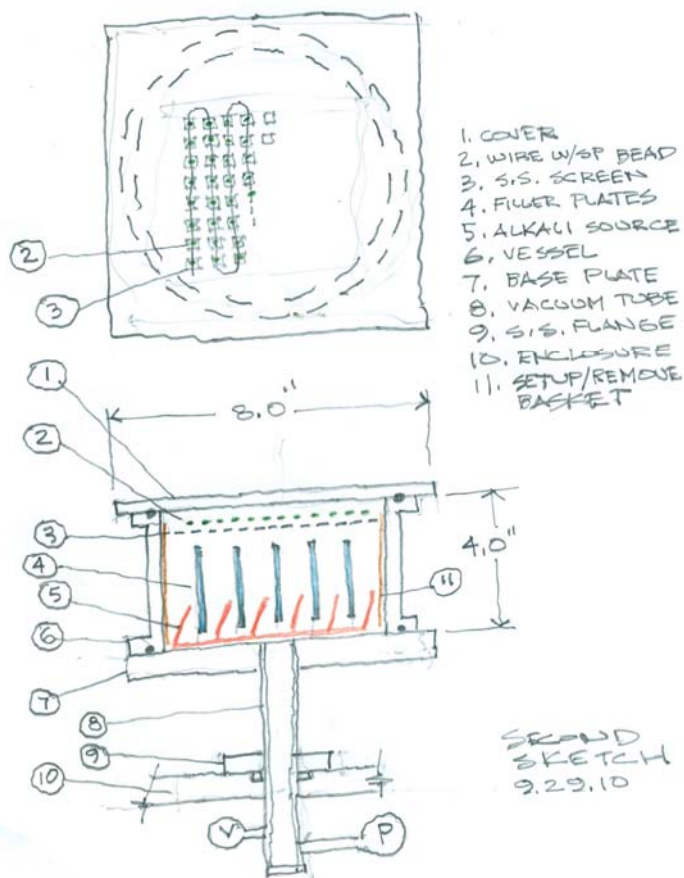 1. COVER
2. WIRE W/SP BEAD
3. S.S. SCREEN
4. FILLER PLATES
5. ALKALI SOURCE
6. VESSEL
7. BASE PLATE
8. VACUUM TUBE
9. S.S. FLANGE
10. ENCLOSURE
11. SETUP/REMOVE
BASKET
2
3
1
8.0"
2
3
4
5
6
7
8
9
10
11
4.0"
V
P
SECOND
SKETCH
9.29.10